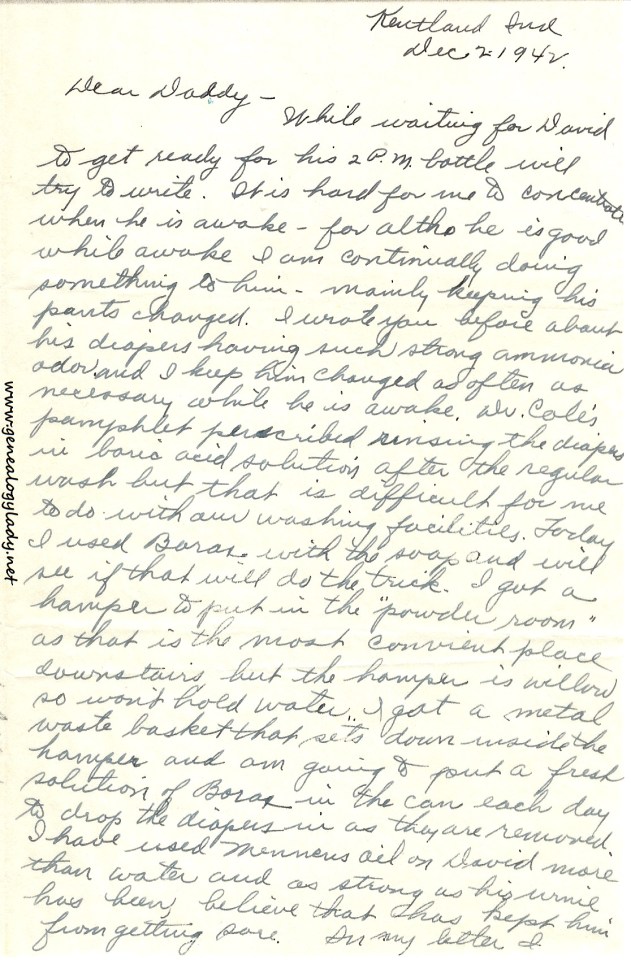 Kentland Ind
Dec 2 1942.
Dear Daddy –
While waiting for David
to get ready for his 2 P.M. bottle will
try to write. It is hard for me to concentrate
when he is awake – for altho he is good
while awake I am continually doing
something to him – mainly keeping his
pants changed. I wrote you before about
his diapers having such strong ammonia
odor and I keep him changed as often as
necessary while he is awake. Dr. Cole's
pamphlet perscribed rinsing the diapers
in boric acid solution after the regular
wash but that is difficult for me
to do with our washing facilities. Today
I used Borax with the soap and will
see if that will do the trick. I got a
hamper to put in the "powder room"
as that is the most convient place
downstairs but the hamper is willow
so wont hold water. I got a metal
waste basket that sets down inside the
hamper and am going to put a fresh
solution of Borax in the can each day
to drop the diapers in as they are removed.
I have used Mennens oil on David more
than water and as strong as his urnie
has been, believe that has kept him
from getting sore. In my letter I
www.genealogylady.net